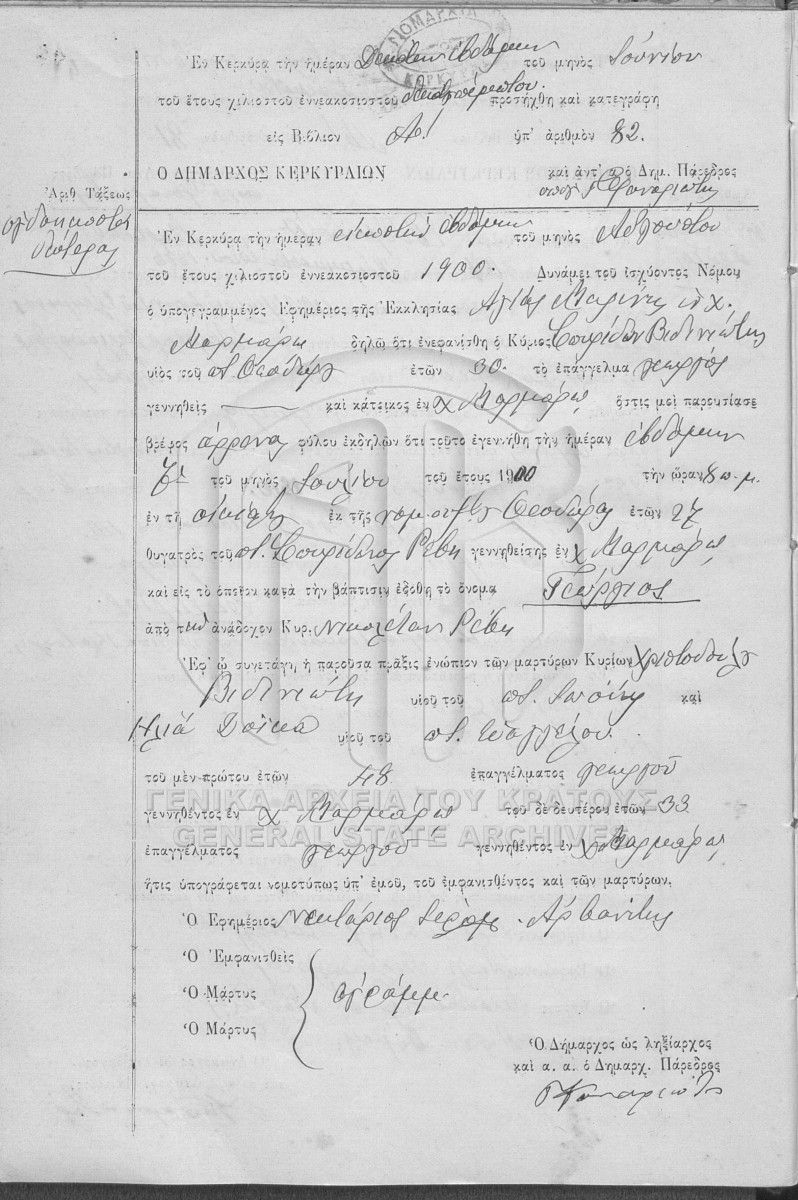 ΝΟΜΑΡΧΙΑ
ΚΕΡΚΥΡΑΣ
Ἐν Κερκύρᾳ τὴν ἡμέραν Δεκάτην ἑβδόμην τοῦ μηνὸς Ἰουνίου
τοῦ ἔτους χιλιοστοῦ ἐννεακοσιοστοῦ προσήχθη καὶ κατεγράφη
εἰς Βιβλίον Α! ὑπ' ἀριθμὸν 82.
Ο ΔΗΜΑΡΧΟΣ ΚΕΡΚΥΡΑΙΩΝ καὶ ἀντ' α.ὁ Δημ. Πάρεδρος
Ἀριθ Τάξεως
ὀγδοηκοστὸς
δεύτερος
Ἐν Κερκύρᾳ τὴν ἡμέραν εἰκοστὴν ἑβδόμην τοῦ μηνὸς Αὐγούστου
τοῦ ἔτους χιλιοστοῦ ἐννεακοσιοστοῦ 1900. Δυνάμει τοῦ ἰσχύοντος Νόμου
ὁ ὑπογεγραμμένος Ἐφημέριος τῆς Ἐκκλησίας Ἁγίας Μαρίνης χ.
Μαρμάρω δηλῶ ὅτι ἐνεφανίσθη ὁ Κύριος Σπυρίδων Βιδινιώτης
υἱὸς τοῦ ποτ. Θεοδώρου ἐτῶν 30. τὸ ἐπάγγελμα γεωργὸς
γεννηθεὶς — καὶ κάτοικος ἐν χ Μαρμάρω ὅστις μοὶ παρουσίασε
βρέφος ἄρρενος φύλου ἐκδηλῶν ὅτι τοῦτο ἐγεννήθη τὴν ἡμέραν ἑβδόμην
7ην τοῦ μηνὸς Ἰουλίου τοῦ ἔτους 1900 τὴν ὥραν 8 π.μ.
ἐν τῇ οἰκίᾳ ἐκ τῆς νομ. συζ. Θεοδώρας ἐτῶν 27
θυγατρὸς τοῦ ποτ. Σπυρίδωνος Ρέβη γεννηθείσης ἐν χ Μαρμάρω
καὶ εἰς τὸ ὁποῖον κατὰ τὴν βάπτισιν ἐδόθη τὸ ὄνομα Γεώργιος
ἀπὸ τὴν ἀνάδοχον Κυρ. Νικολέταν Ρέβη
Ἐφ' ᾧ συνετάγη ἡ παροῦσα πρᾶξις ἐνώπιον τῶν μαρτύρων Κυρίων Χριστοδούλου
Βιδινιώτη υἱοῦ τοῦ ποτ. καὶ
Ηλία υἱοῦ τοῦ ποτ. Εὐαγγέλου.
τοῦ μὲν πρώτου ἐτῶν 48 ἐπαγγέλματος γεωργοῦ
γεννηθέντος ἐν χ Μαρμάρω τοῦ δὲ δευτέρου ἐτῶν 33
ἐπαγγέλματος γεωργοῦ γεννηθέντος ἐν χ Μαρμάρω
ἥτις ὑπογράφεται νομοτύπως ὑπ' ἐμοῦ, τοῦ ἐμφανισθέντος καὶ τῶν μαρτύρων.
Ὁ Ἐφημέριος Νεκτάριος Ἱερομ. Ἀρβανίτης
Ὁ Ἐμφανισθεὶς
Ὁ Μάρτυς ἀγράμμ.
Ὁ Μάρτυς
Ὁ Δήμαρχος ὡς ληξίαρχος
καὶ α. α. ὁ Δημαρχ. Πάρεδρος
ΓΕΝΙΚΑ ΑΡΧΕΙΑ ΤΟΥ ΚΡΑΤΟΥΣ
GENERAL STATE ARCHIVES